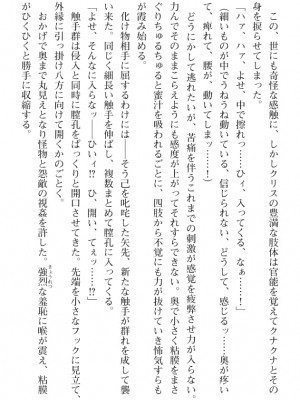 この、世にも奇怪な感触に、しかしクリスの豊満な肢体は官能を覚えてクナクナとその
身を捩らせてしまった。
「ハァ、ハァ、よせ、中で擦れっ……ひィ、入ってくる、なぁ……！」
（細いものが中でうねうね動いている、信じられない、どうして、感じるッ……奥が疼い
て、痺れて、腰が、動いてしまッ……！）
　どうにかして逃れたいが、苦痛を伴うこれまでの刺激が感覚を疲弊させ力が入らない。
力んでそのまさぐりを止めようにも感度が上がってそれすらできない。奥で小さく粘膜をまさ
ぐりちゅるちゅると蜜汁を吸われるごとに、四肢から不覚にも力が抜けていき怖気すらも
が霞み始める。
　化け物相手に屈するわけには――そう己を叱咤した矢先、新たな触手が群れを成して襲
い来た。同じく細長い触手を伸ばし、複数まとめて膣孔に入ってくる。
「よせ、そんなに入らなッ――ひぃィ！？　ひ、開い、てぇッ……！？」
　触手群は侵入と同時に膣孔をぱっくりと開口させてきた。先端を小さなフックに見立て、
外縁に引っ掛け八方に向けて開くかのごとく。
　おかげで奥まで丸見えとなり怪物と怨敵の視姦を許した。強烈な羞恥に喉が震え、粘膜
がひくひくと勝手に収縮する。